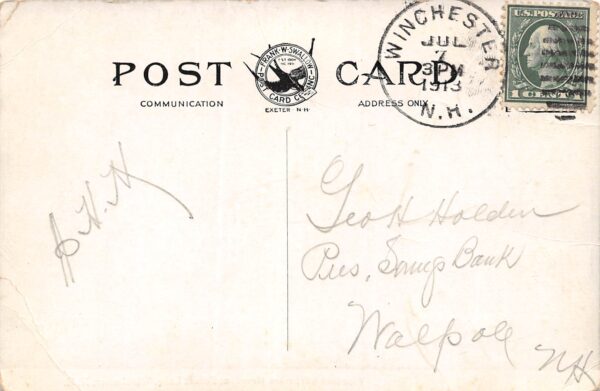 POST CARD
FRANK·W·SWALLOW
POST CARD CO. INC.
EXETER N·H·
COMMUNICATION
ADDRESS ONLY
WINCHESTER
JUL
7
3 PM
1913
N.H.
U.S. POSTAGE
1 CENT 1
A.H.H
Geo H Holden
Pres, Savings Bank
Walpole
NH